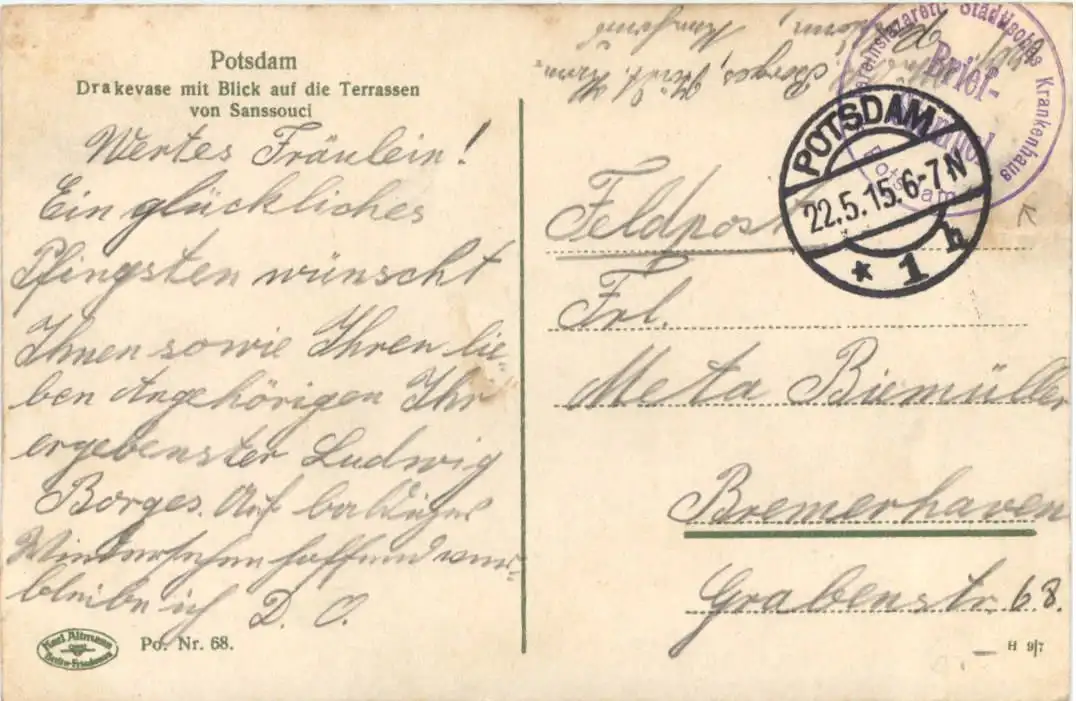 Potsdam
Drakevase mit Blick auf die Terrassen
von Sanssouci
Wertes Fräulein!
Ein glückliches
Pfingsten wünscht
Ihnen sowie Ihren lie„
ben Angehörigen Ihr
ergebenster Ludwig
Borges. Auf baldiges
Wiedersehen hoffend ver„
bleibe ich D. O.
Karl Altmann
Po. Nr. 68.
Borges,
Vereinslazarett Städtisches Krankenhaus
Brief-
Potsdam
POTSDAM
22.5.15.6-7N
* 1 h
Feldpost
Frl.
Meta Biemüller
Bremerhaven
Grabenstr. 68.
H 9/7